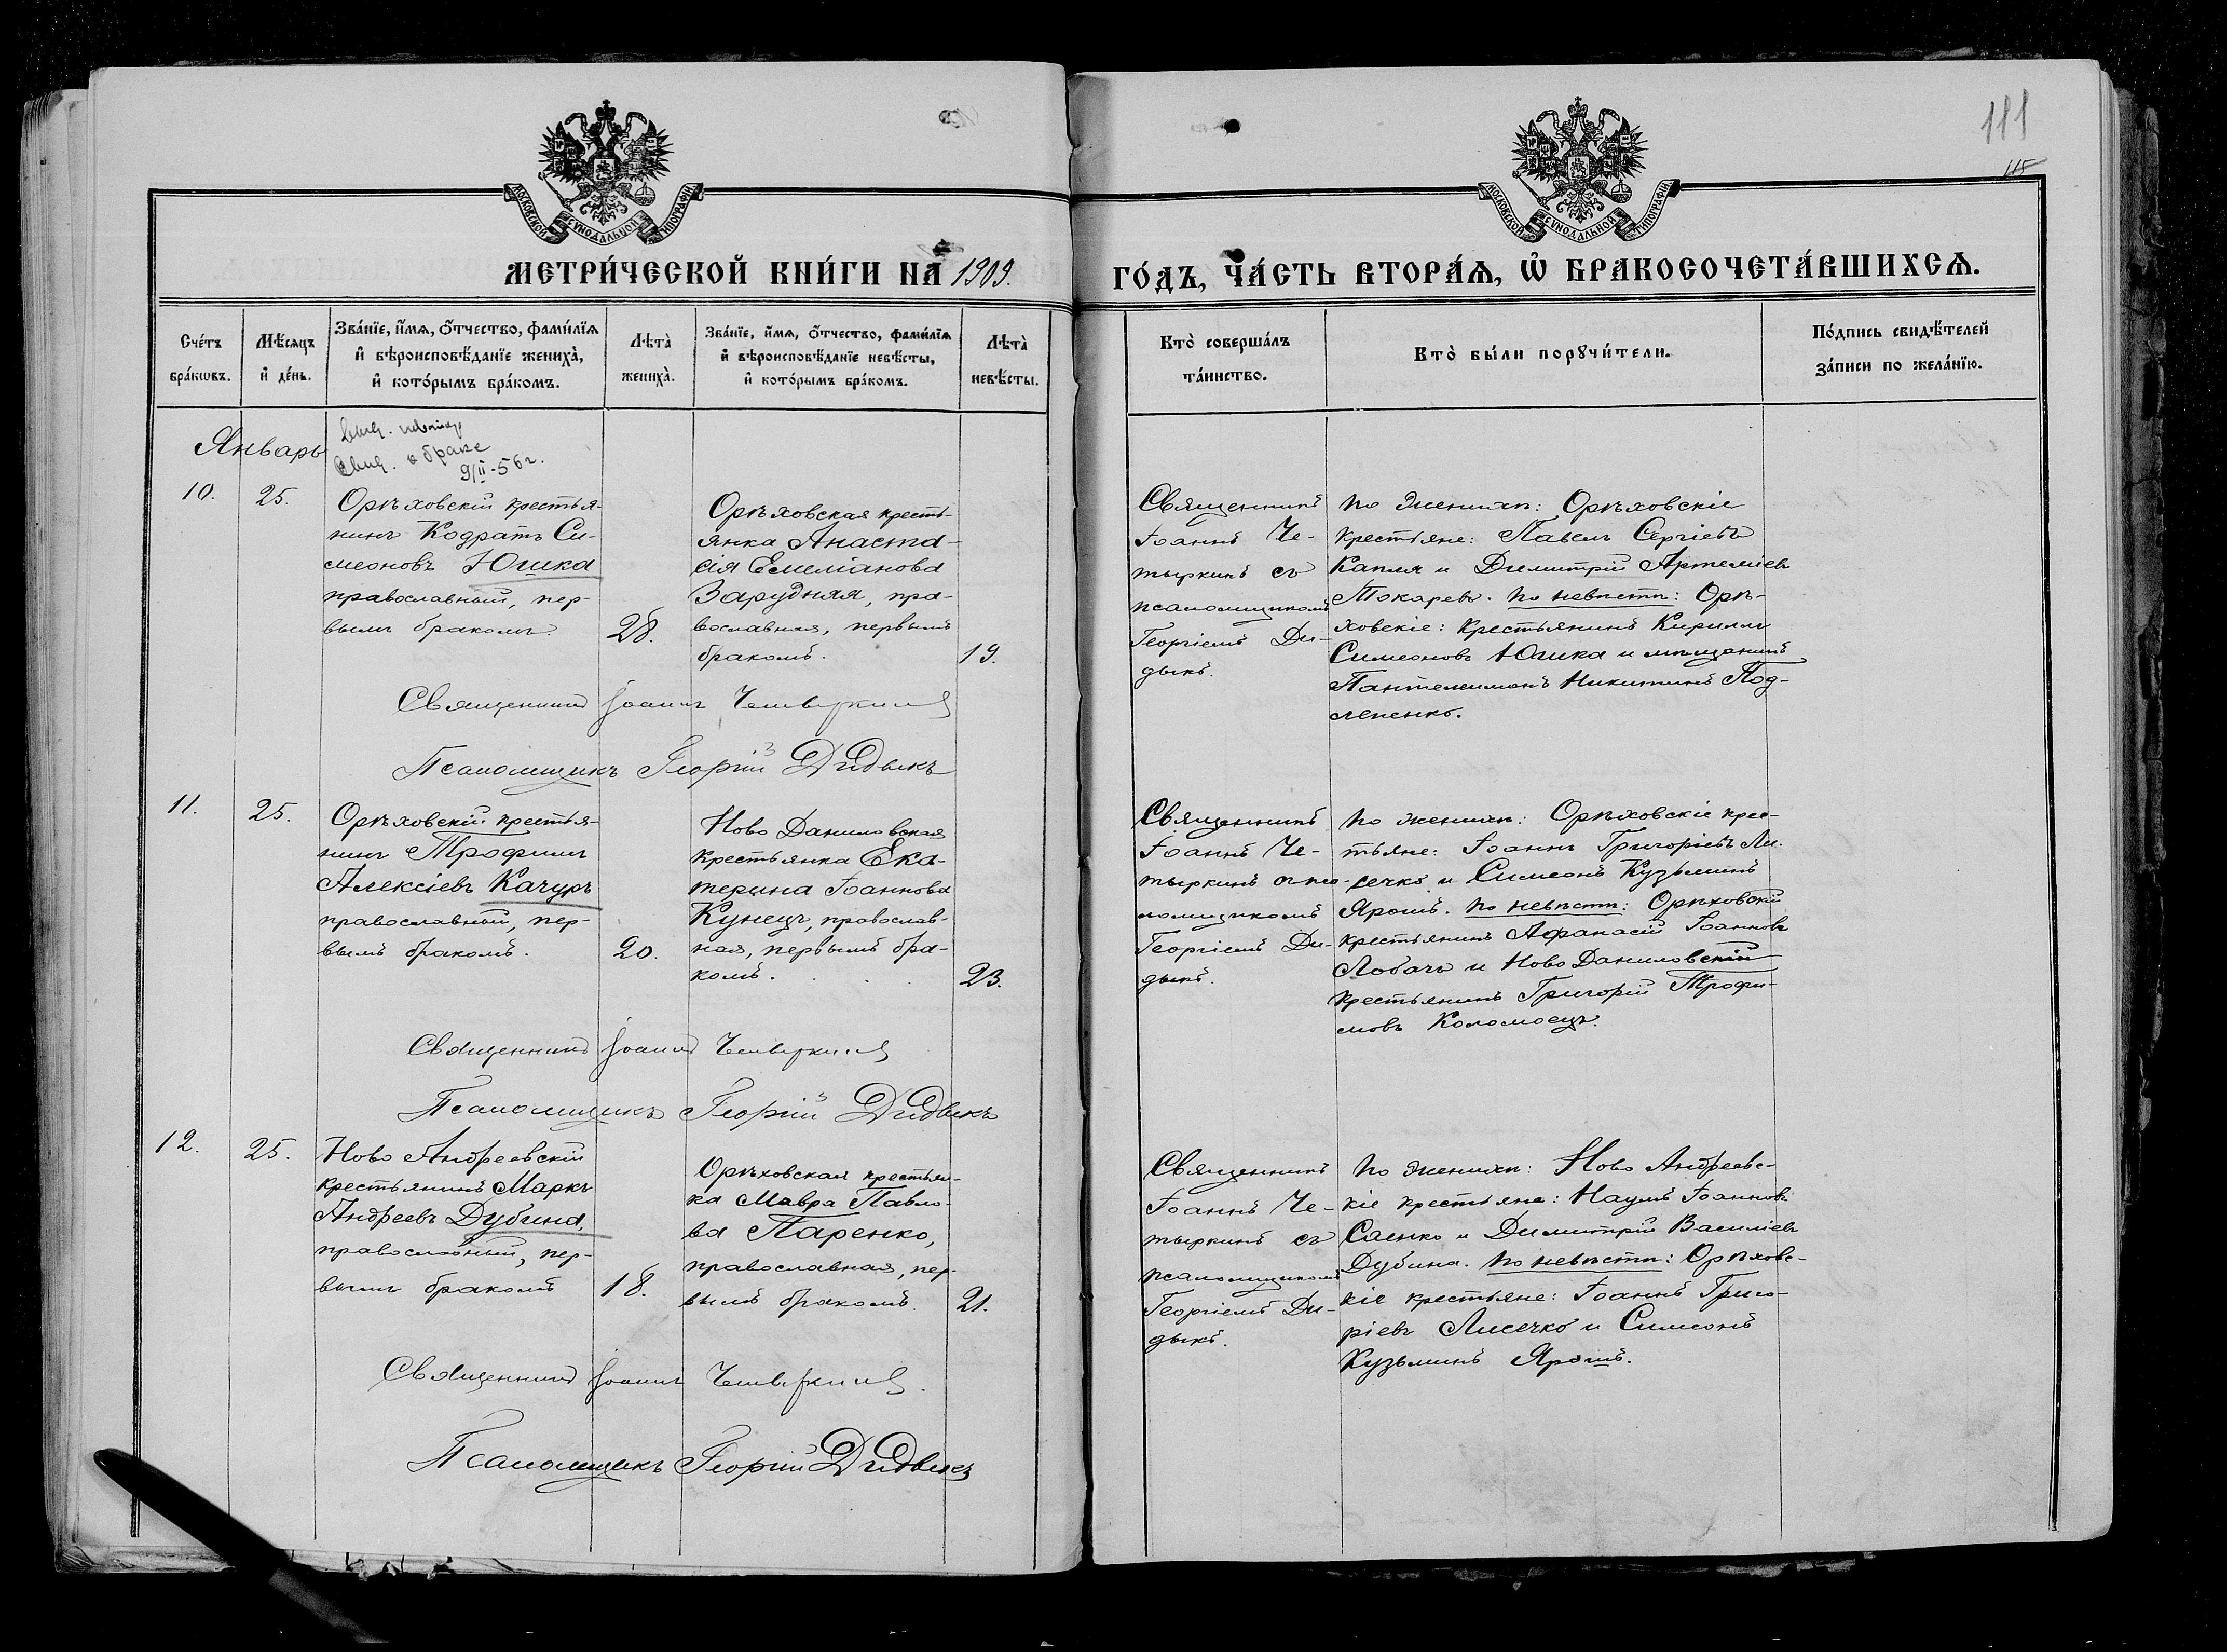 111
115
МОСКОВСКОЙ СѴНОДАЛЬНОЙ ТИПОГРАФІИ
МОСКОВСКОЙ СѴНОДАЛЬНОЙ ТИПОГРАФІИ
МЕТРИ́ЧЕСКОЙ КНИ́ГИ НА 1909. ГО́ДЪ, ЧА́СТЬ ВТОРА́Ѧ, Ѽ БРАКОСОЧЕТА́ВШИХСѦ.
Сче́тъ бра́кѡвъ.
Мѣ́сяцъ и҆ де́нь.
Зва́нїе, и҆́мѧ, ѻ҆́тчество, фами́лїѧ
и҆ вѣроисповѣ́данїе жениха̀,
и҆ кото́рымъ бра́комъ.
Лѣта̀ жениха̀.
Зва́нїе, и҆́мѧ, ѻ҆́тчество, фами́лїѧ
и҆ вѣроисповѣ́данїе невѣ́сты,
и҆ кото́рымъ бра́комъ.
Лѣта̀ невѣ́сты.
Кто̀ соверша́лъ
та́инство.
Кто̀ бы́ли порꙋчи́тели.
По́дпись свидѣ́телей
за́писи по жела́нїю.
Январь
Выд.
Свид. о браке
9/II-56г.
10.
25.
Орѣховскій крестья-
нинъ Кодратъ Си-
меоновъ Юшка
православный, пер-
вымъ бракомъ.
28.
Орѣховская кресть-
янка Анаста-
сія Емеліанова
Зарудняя, пра-
вославная, первымъ
бракомъ.
19.
Священникъ
Іоаннъ Че-
тыркинъ съ
псаломщикомъ
Георгіемъ Ди-
дыкъ.
По женихѣ: Орѣховскіе
крестьяне: Павелъ Сергіевъ
Капля и Димитрій Артеміевъ
Токаревъ. По невѣстѣ: Орѣ-
ховскіе: крестьянинъ Кириллъ
Симеоновъ Юшка и мѣщанинъ
Пантелеимонъ Никитинъ Под-
лепенко.
Священникъ Іоаннъ Четыркинъ
Псаломщикъ Георгій Дидыкъ
11.
25.
Орѣховскій крестья-
нинъ Трофимъ
Алексіевъ Качуръ
православный, пер-
вымъ бракомъ.
20.
Ново Даниловская
крестьянка Ека-
терина Іоаннова
Кунецъ, православ-
ная, первымъ бра-
комъ.
23.
Священникъ
Іоаннъ Че-
тыркинъ съ пса-
ломщикомъ
Георгіемъ Ди-
дыкъ.
По женихѣ: Орѣховскіе крес-
тьяне: Іоаннъ Григоріевъ Ли-
сечко и Симеонъ Кузьминъ
Ярошъ. По невѣстѣ: Орѣховскій
крестьянинъ Афанасій Іоанновъ
Лобачъ и Ново Даниловскій
крестьянинъ Григорій Трофи-
мовъ Коломоецъ.
Священникъ Іоаннъ Четыркинъ
Псаломщикъ Георгій Дидыкъ
12.
25.
Ново Андреевскій
крестьянинъ Маркъ
Андреевъ Дубина,
православный, пер-
вымъ бракомъ
18.
Орѣховская крестьян-
ка Мавра Павло-
ва Паренко,
православная, пер-
вымъ бракомъ.
21.
Священникъ
Іоаннъ Че-
тыркинъ съ
псаломщикомъ
Георгіемъ Ди-
дыкъ.
По женихѣ: Ново Андреевс-
кіе крестьяне: Наумъ Іоанновъ
Саенко и Димитрій Василіевъ
Дубина. По невѣстѣ: Орѣховс-
кіе крестьяне: Іоаннъ Григо-
ріевъ Лисечко и Симеонъ
Кузьминъ Ярошъ.
Священникъ Іоаннъ Четыркинъ.
Псаломщикъ Георгій Дидыкъ